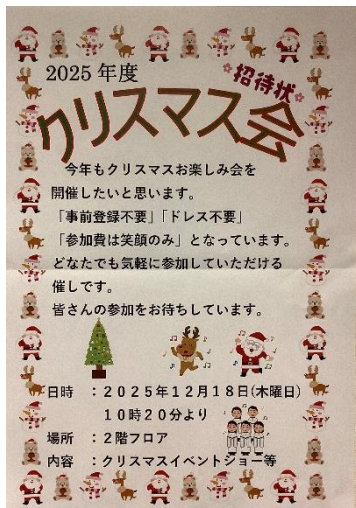 2025年度
招待状
クリスマス会
今年もクリスマスお楽しみ会を
開催したいと思います。
「事前登録不要」「ドレス不要」
「参加費は笑顔のみ」となっています。
どなたでも気軽に参加していただける
催しです。
皆さんの参加をお待ちしています。
日時　：２０２５年１２月１８日(木曜日)
１０時２０分より
場所　：２階フロア
内容　：クリスマスイベントショー等